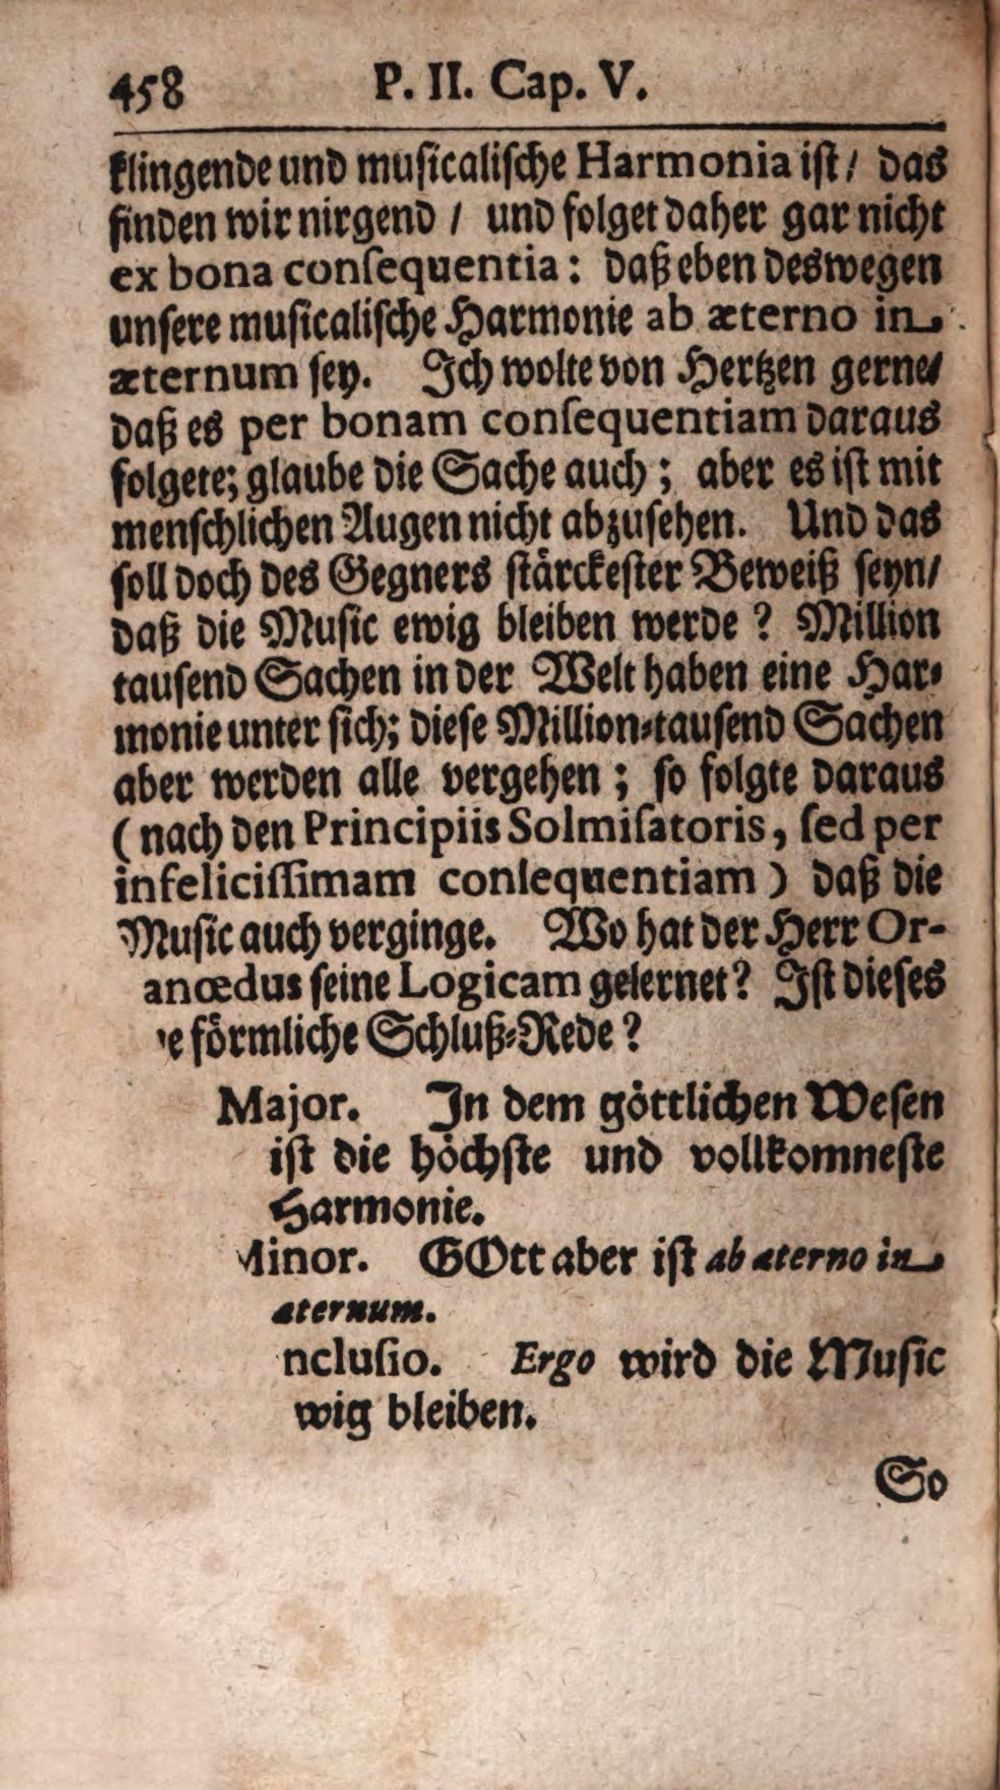 458 P. II. Cap. V.
klingende und musicalische Harmonia ist/ das
finden wir nirgend / und folget daher gar nicht
ex bona consequentia: daß eben deswegen
unsere musicalische Harmonie ab æterno in
æternum sey. Ich wolte von Hertzen gerne/
daß es per bonam consequentiam daraus
folgete; glaube die Sache auch; aber es ist mit
menschlichen Augen nicht abzusehen. Und das
soll doch des Gegners stärckester Beweiß seyn/
daß die Music ewig bleiben werde? Million
tausend Sachen in der Welt haben eine Har-
monie unter sich; diese Million-tausend Sachen
aber werden alle vergehen; so folgte daraus
(nach den Principiis Solmisatoris, sed per
infelicissimam consequentiam) daß die
Music auch verginge. Wo hat der Herr Or-
anœdus seine Logicam gelernet? Ist dieses
e förmliche Schluß-Rede?
Major. In dem göttlichen Wesen
ist die höchste und vollkomneste
Harmonie.
Minor. GOtt aber ist ab æterno in
æternum.
nclusio. Ergo wird die Music
wig bleiben.
So